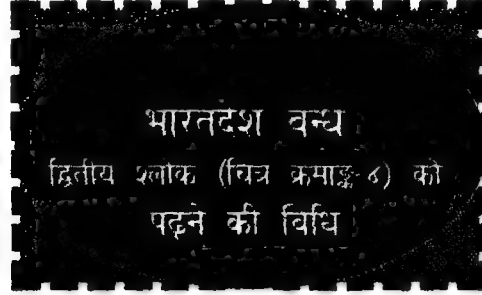 भारतदेश वन्ध
द्वितीय श्लोक (चित्र क्रमाङ्क-४) को
पढ़ने की विधि